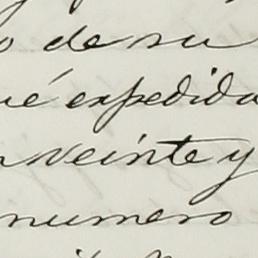 o de su
ué expedida
veinte y
numero